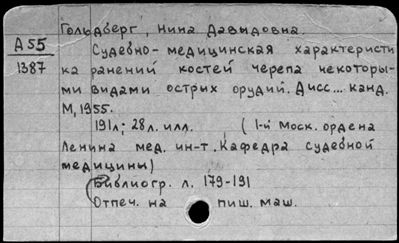 Гольдберг, Нина Давыдовна.
А 55
1387
Судебно-медицинская характеристи
ка ранений костей черепа некоторы-
ми видами острых орудий. Дисс... канд.
М, 1955.
191 л; 28 л. илл. (1-й Моск. ордена
Ленина мед. ин-т. Кафедра судебной
медицины)
Библиогр. л. 179-191
Отпеч. на пиш. маш.